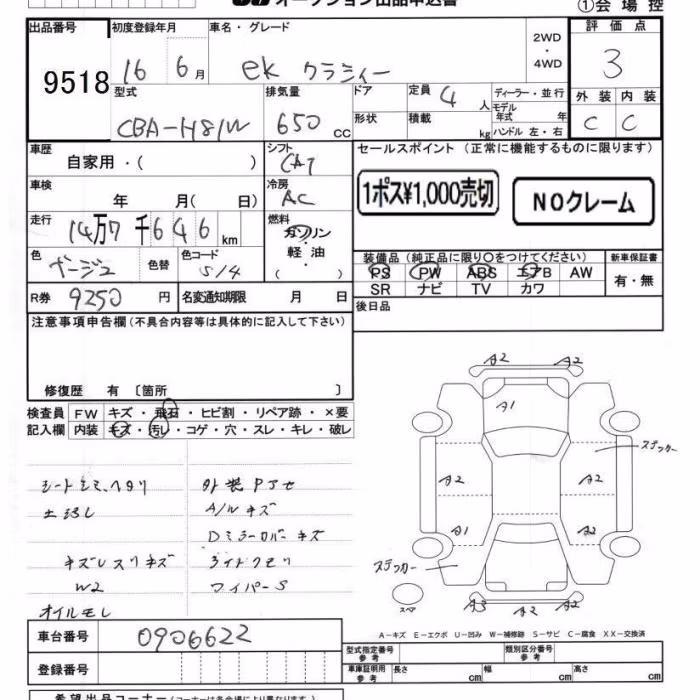 オークション出品申込書
①会場控
出品番号 初度登録年月 車名・グレード 2WD・4WD 評価点
9518 16 6月 ek クラシィー 3
型式 排気量 ドア 定員 4人 ディーラー・並行 外装 内装
CBA-H81W 650cc 形状 積載 kg モデル年式 年 ハンドル 左・右 C C
車歴 自家用・( ) シフト CAT セールスポイント (正常に機能するものに限ります)
車検 年 月( 日) 冷房 AC 1ポス¥1,000売切 NOクレーム
走行 14万7千646km 燃料 ガソリン・軽油 ( )
色 ベージュ 色替 色コード S14 装備品(純正品に限り○をつけてください) 新車保証書
PS PW ABS エアB AW 有・無
SR ナビ TV カワ
R券 9250円 名変通知期限 月 日 後日品
注意事項申告欄(不具合内容等は具体的に記入して下さい)
修復歴 有 〔箇所 〕
検査員 FW キズ・飛石・ヒビ割・リペア跡・×要
記入欄 内装 キズ・汚レ・コゲ・穴・スレ・キレ・破レ
A2 A2
A1
ステッカー
A2 A2
A1 A2
ステッカー
スペア A3 A2 A2
シートシミ、ヘタリ 外装Pアセ
土汚レ A/Wキズ
Dミラーカバーキズ
キズレスリキズ ライトクモリ
W2 ワイパーS
オイルモレ
A-キズ E-エクボ U-凹み W-補修跡 S-サビ C-腐食 XX-交換済
車台番号 0906622
型式指定番号 参考 類別区分番号 参考
登録番号 車庫証明用 参考 長さ cm 幅 cm 高さ cm
希望出品コーナー(コーナーは各会場により異なります)